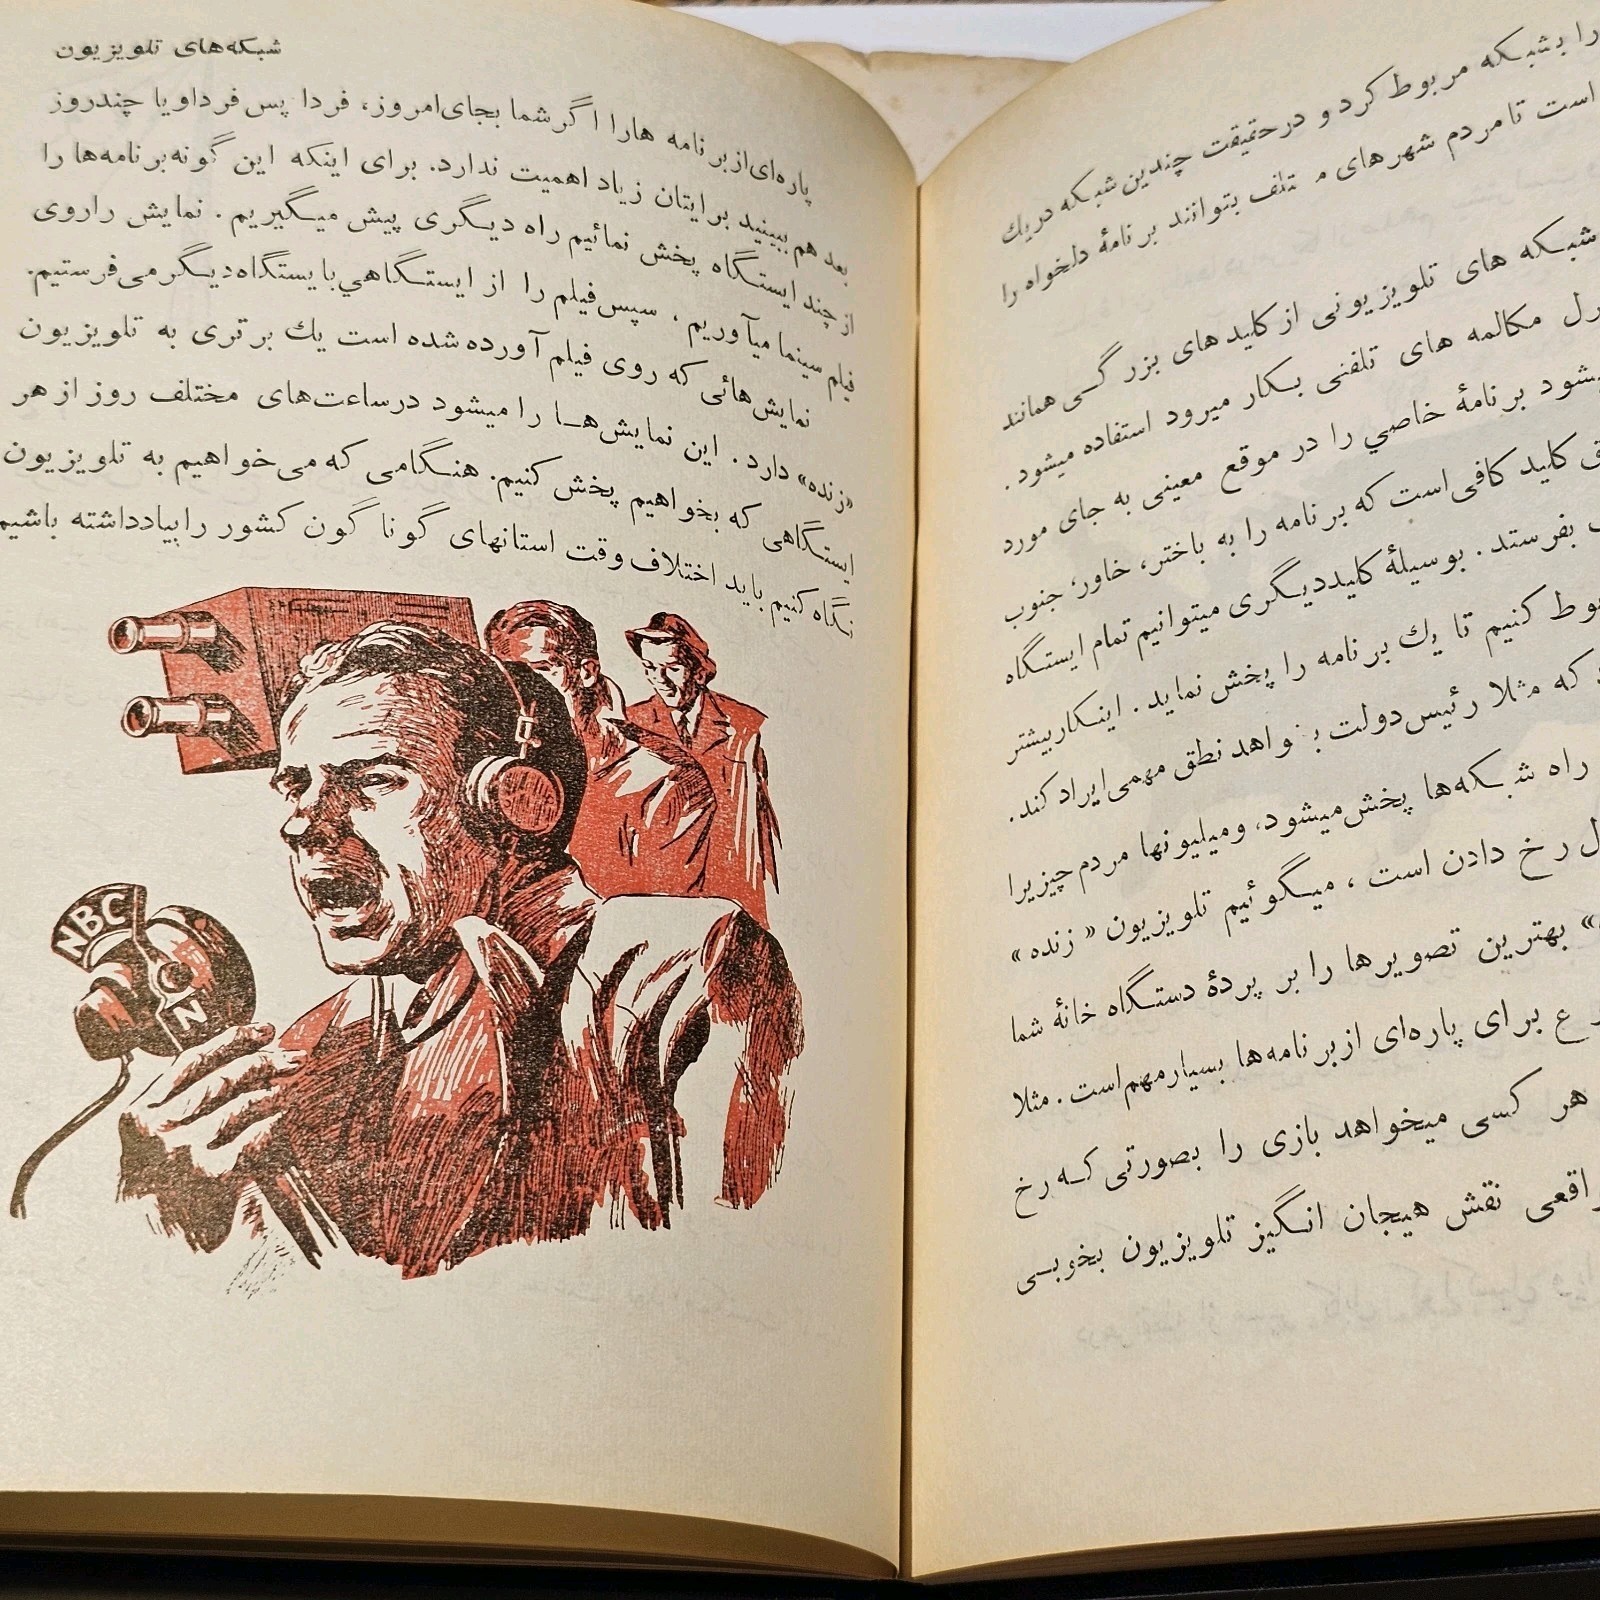 را بشبکه مربوط کرد و درحقیقت چندین شبکه در یك
است تا مردم شهرهای م تلف بتوانند برنامهٔ دلخواه را
شبکه های تلویزیونی از کلیدهای بزرگی همانند
مکالمه های تلفنی بکار میرود استفاده میشود.
برنامهٔ خاصی را در موقع معینی به جای مورد
کلید کافی است که برنامه را به باختر، خاور، جنوب
بفرستد. بوسیلهٔ کلید دیگری میتوانیم تمام ایستگاه
کنیم تا یك برنامه را پخش نماید. اینکار بیشتر
که مثلا رئیس دولت بخواهد نطق مهمی ایراد کند.
راه شبکه‌ها پخش میشود، و میلیونها مردم چیزیرا
رخ دادن است، میگوئیم تلویزیون «زنده»
بهترین تصویرها را بر پردهٔ دستگاه خانهٔ شما
برای پاره‌ای از برنامه‌ها بسیار مهم است. مثلا
هر کسی میخواهد بازی را بصورتی که رخ
نقش هیجان انگیز تلویزیون بخوبی
شبکه‌های تلویزیون
پاره‌ای از برنامه هارا اگر شما بجای امروز، فردا پس فردا و یا چندروز
بعد هم ببینید برایتان زیاد اهمیت ندارد. برای اینکه این گونه برنامه‌ها را
از چند ایستگاه پخش نمائیم راه دیگری پیش میگیریم. نمایش را روی
فیلم سینما میآوریم، سپس فیلم را از ایستگاهی بایستگاه دیگر می‌فرستیم.
نمایش‌هائی که روی فیلم آورده شده است یك برتری به تلویزیون
«زنده» دارد. این نمایش‌ها را میشود درساعت‌های مختلف روز از هر
ایستگاهی که بخواهیم پخش کنیم. هنگامی که می‌خواهیم به تلویزیون
نگاه کنیم باید اختلاف وقت استانهای گوناگون کشور را بیادداشته باشیم
NBC
N